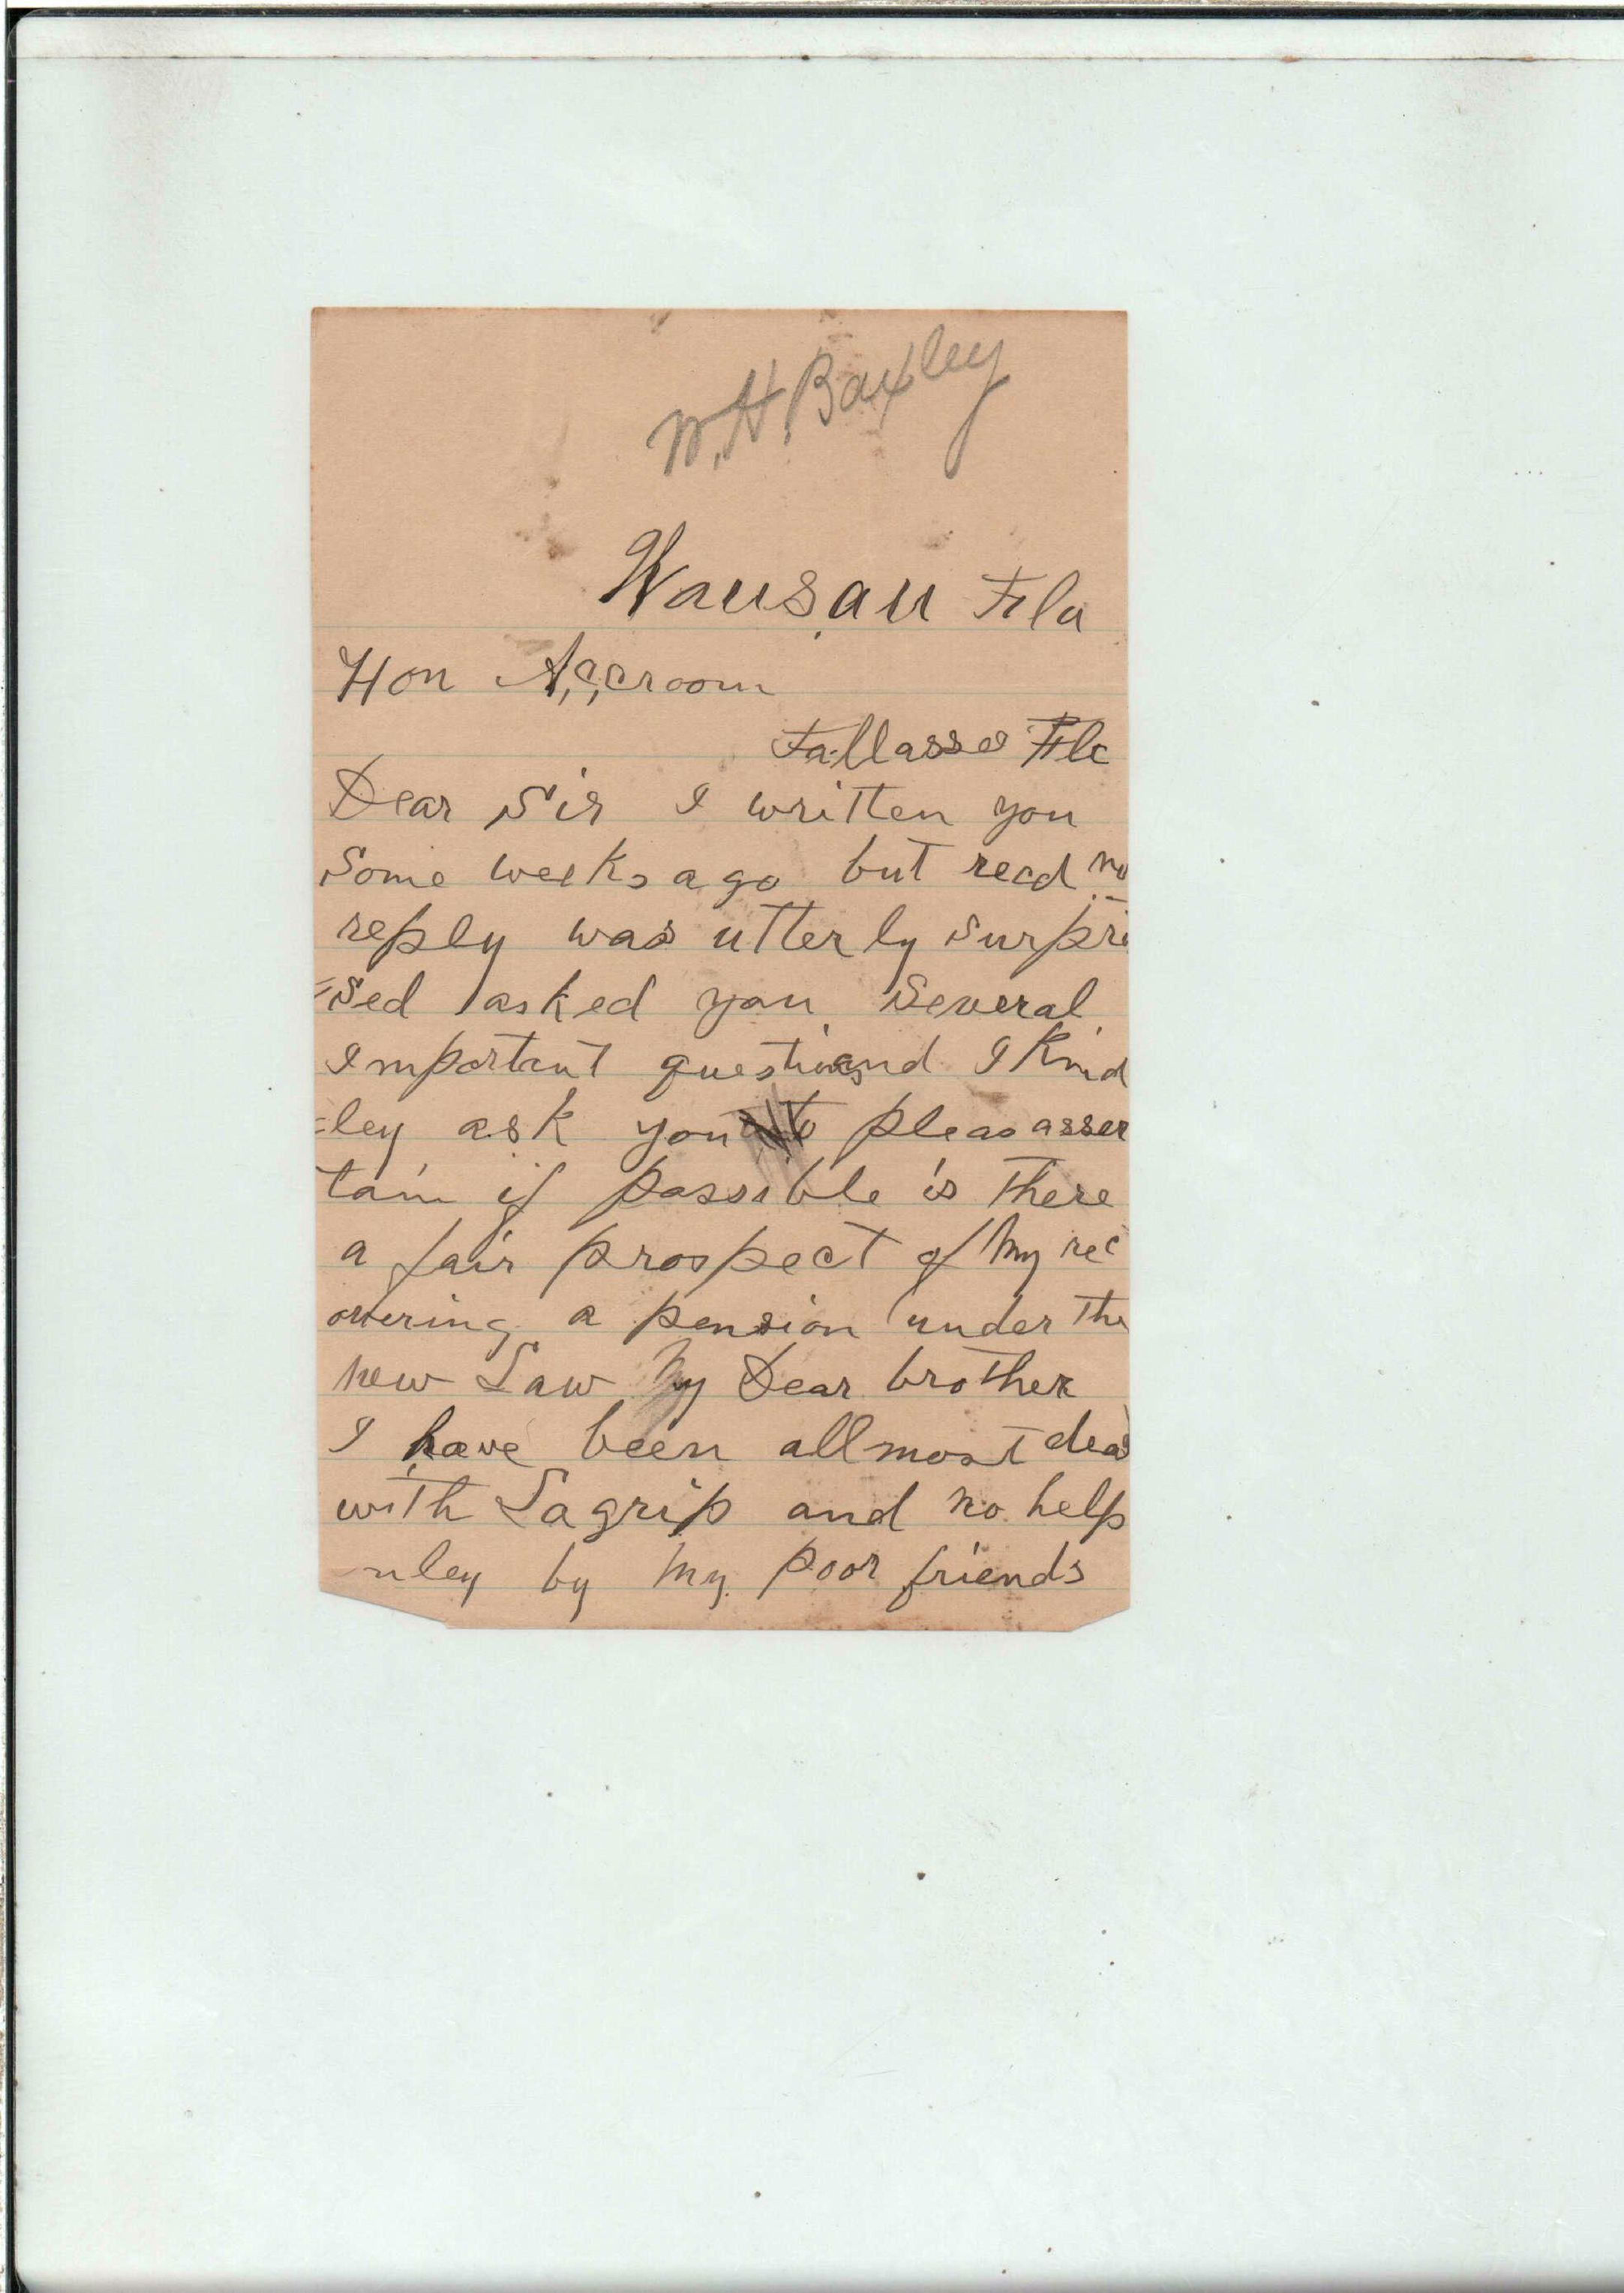 W.H. Baxley
Wausau Fla
Hon A,C,Croom
Tallassee Fla
Dear Sir I written you
Some weeks ago but recd no
reply was utterly surpri
=sed asked you Several
Important questions and I Kind
=ley ask you to pleas asser
tain if possible is there
a fair prospect of My rec
overing a pension under the
new Law My Dear brother
I have been allmost dead
with Lagrip and no help
nley by My poor friends